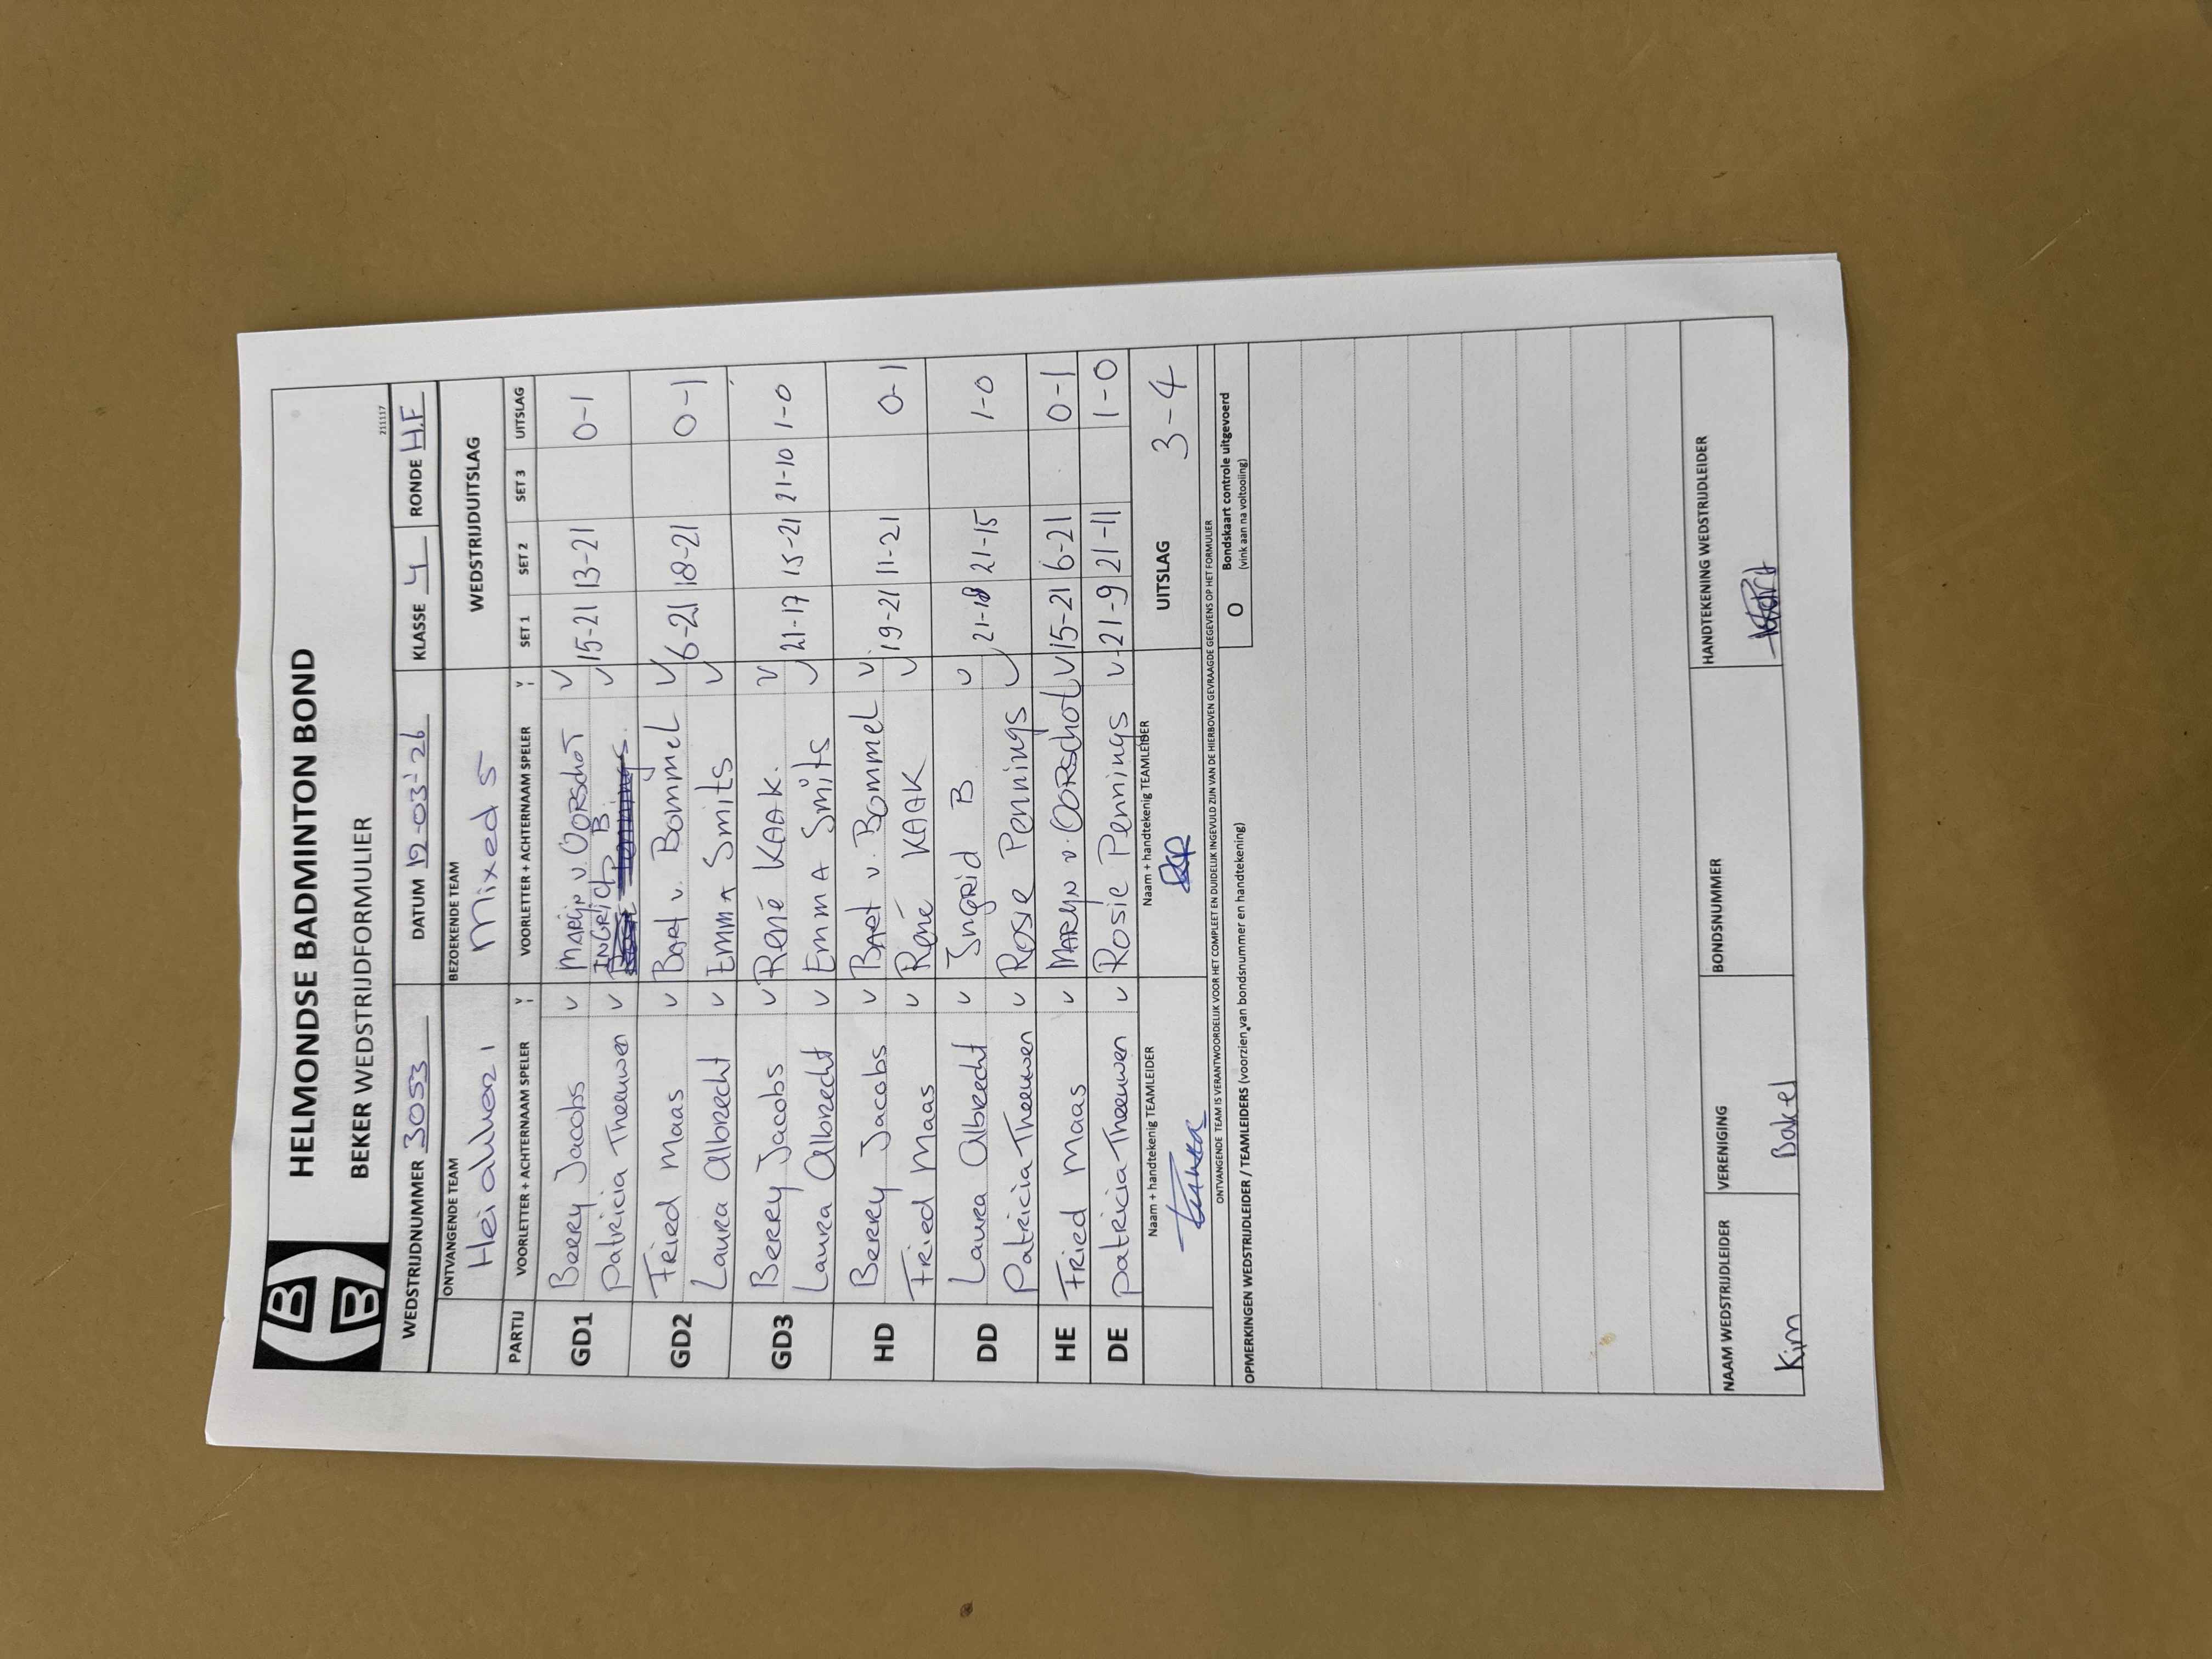 HELMONDSE BADMINTON BOND
BEKER WEDSTRIJDFORMULIER
211117
WEDSTRIJDNUMMER 3053 DATUM 19-03-'26 KLASSE 4 RONDE H.F
ONTVANGENDE TEAM BEZOEKENDE TEAM WEDSTRIJDUITSLAG
Heiakker 1 Mixed 5
PARTIJ VOORLETTER + ACHTERNAAM SPELER V VOORLETTER + ACHTERNAAM SPELER V SET 1 SET 2 SET 3 UITSLAG
GD1 Berry Jacobs v Marijn v. Oorschot v 15-21 13-21 0-1
Patricia Theeuwen v INGRID B. v
GD2 Fried Maas v Bart v. Bommel v 6-21 18-21 0-1
Laura Albrecht v Emma Smits v
GD3 Berry Jacobs v René KAAK. v 21-17 15-21 21-10 1-0
Laura Albrecht v Emma Smits v
HD Berry Jacobs v Bart v. Bommel v 19-21 11-21 0-1
Fried Maas v René KAAK v
DD Laura Albrecht v Ingrid B v 21-18 21-15 1-0
Patricia Theeuwen v Rosie Pennings v
HE Fried Maas v Marijn v. Oorschot v 15-21 6-21 0-1
DE Patricia Theeuwen v Rosie Pennings v 21-9 21-11 1-0
Naam + handtekenig TEAMLEIDER Naam + handtekenig TEAMLEIDER UITSLAG 3-4
ONTVANGENDE TEAM IS VERANTWOORDELIJK VOOR HET COMPLEET EN DUIDELIJK INGEVULD ZIJN VAN DE HIERBOVEN GEVRAAGDE GEGEVENS OP HET FORMULIER
O Bondskaart controle uitgevoerd
(vink aan na voltooiing)
OPMERKINGEN WEDSTRIJDLEIDER / TEAMLEIDERS (voorzien van bondsnummer en handtekening)
NAAM WEDSTRIJDLEIDER VERENIGING BONDSNUMMER HANDTEKENING WEDSTRIJDLEIDER
Kim Bakel